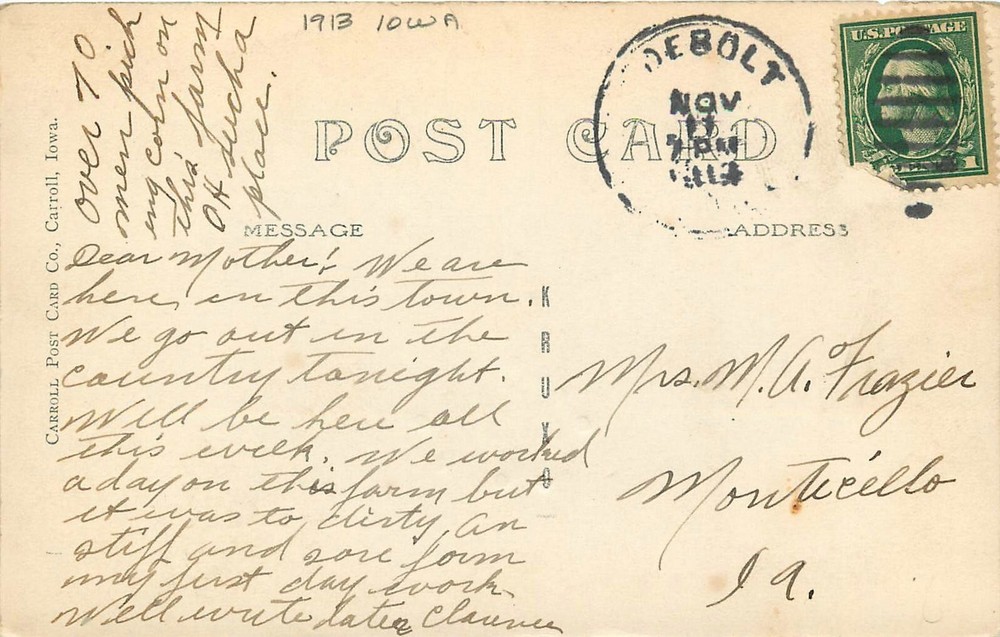 1913 IOWA
Over 70
men pick
ing corn on
this farm
Oh such a
place.
CARROLL POST CARD CO., CARROLL, IOWA.
POST CARD
DEBOLT
NOV
7 PM
1913
U.S. POSTAGE
1
MESSAGE
ADDRESS
Dear Mother: We are
here in this town.
We go out in the
country tonight.
Will be here all
this week. We worked
a day on this farm but
it was to dirty. Am
stiff and sore form
my first day work.
Will write later Clarence
KRUXO
Mrs. M. A. Frazier
Monticello
Ia.